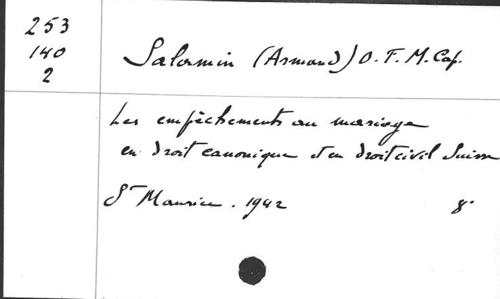 253
140
2
Salamin (Armand) O. F. M. Cap.
Les empêchements au mariage
en droit canonique et en droit civil Suisse
St Maurice. 1942 8°